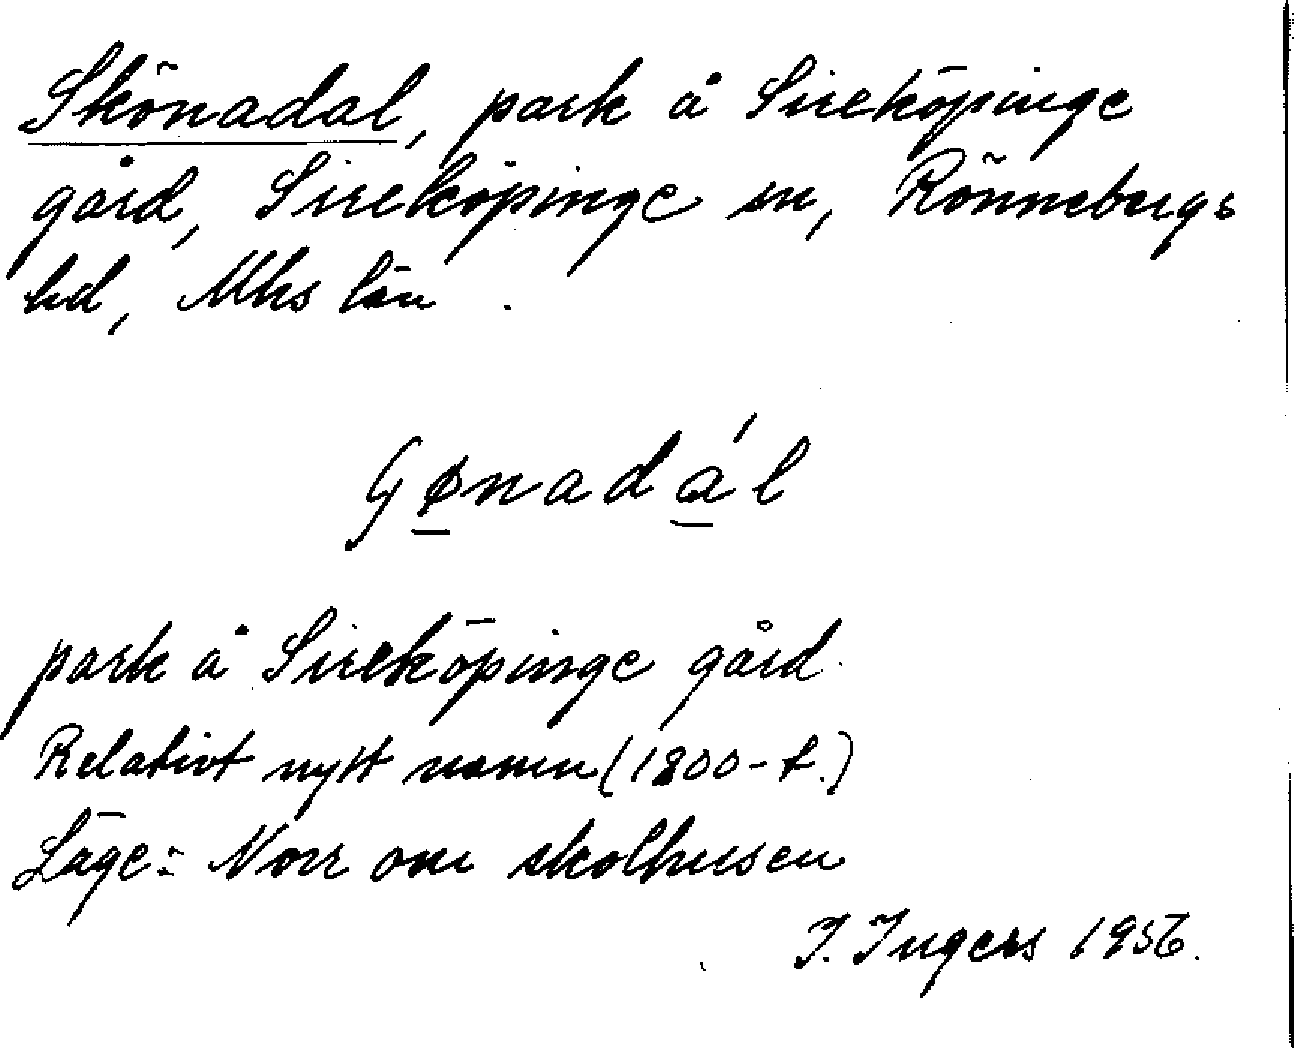 Skönadal, park å Sireköpinge
gård, Sireköpinge sn, Rönnebergs
hd, Mhs län.
Gønadál
park å Sireköpinge gård
Relativt nytt namn (1800-t.)
Läge: Norr om skolhusen
I. Ingers 1956.